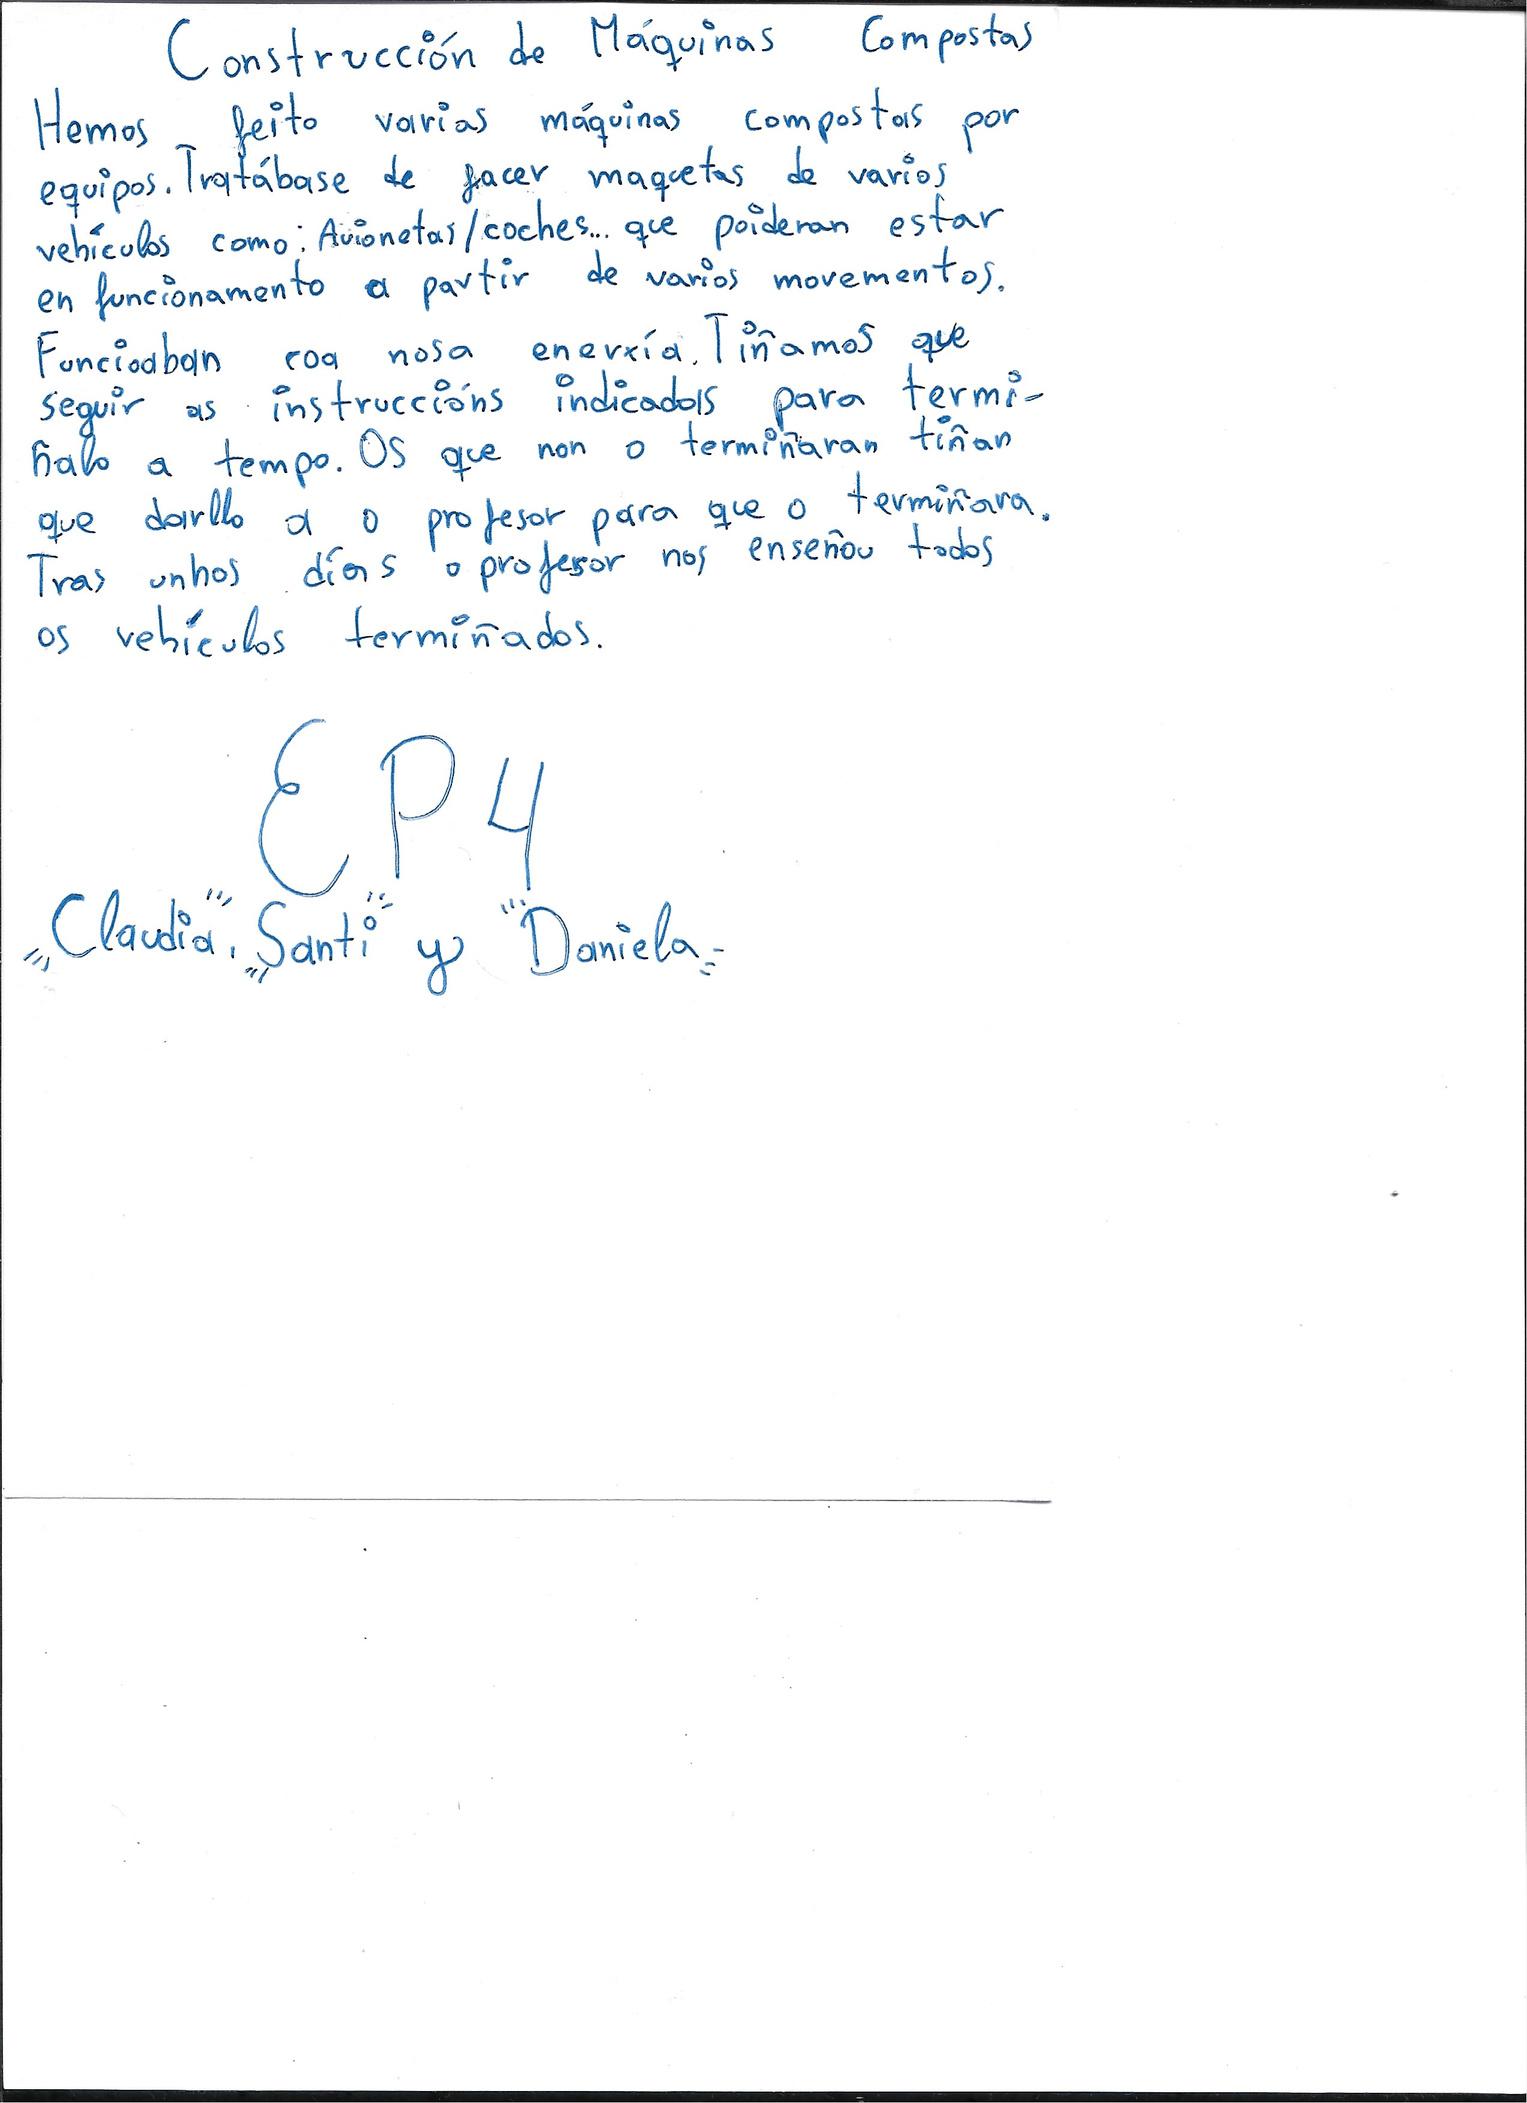 Construcción de Máquinas Compostas
Hemos feito varias máquinas compostas por
equipos. Tratábase de facer maquetas de varios
vehículos como: Avionetas/coches... que poideran estar
en funcionamento a partir de varios movementos.
Funcioaban coa nosa enerxía. Tiñamos que
seguir as instruccións indicadas para termi-
ñalo a tempo. Os que non o termiñaran tiñan
que darllo a o profesor para que o termiñara.
Tras unhos días o profesor nos enseñou todos
os vehículos termiñados.
EP4
Claudia, Santi y Daniela